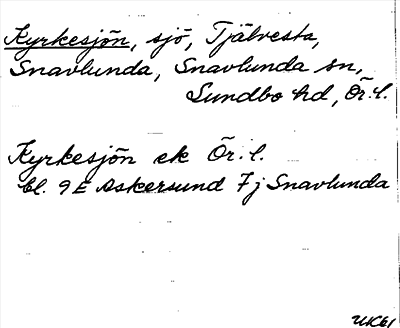 Kyrkesjön, sjö, Tjälvesta,
Snavlunda, Snavlunda sn,
Sundbo hd, Ör. l.
Kyrkesjön ek Ör. l.
bl. 9E Askersund 7j Snavlunda